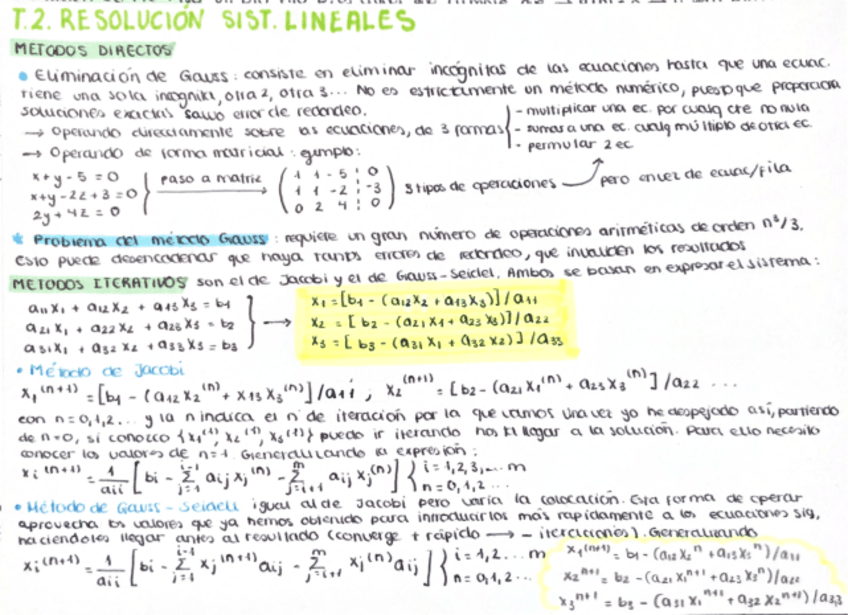 T.2. RESOLUCIÓN SIST. LINEALES
METODOS DIRECTOS
• Eliminación de Gauss: consiste en eliminar incógnitas de las ecuaciones hasta que una ecuac.
tiene una sola incognita, otra 2, otra 3... No es estrictamente un método numérico, puesto que proporciona
soluciones exactas salvo error de redondeo.
→ Operando directamente sobre las ecuaciones, de 3 formas
- multiplicar una ec. por cualq cte no nula
- sumar a una ec. cualq múltiplo de otra ec.
- permutar 2 ec
→ Operando de forma matricial: ejemplo:
x + y - 5 = 0
x + y - 2z + 3 = 0
2y + 4z = 0
paso a matriz
( 1 1 -5 ¦ 0
1 1 -2 ¦ -3
0 2 4 ¦ 0 )
3 tipos de operaciones
pero en vez de ecuac/fila
* Problema del método Gauss: requiere un gran número de operaciones aritméticas de orden n³/3.
Esto puede desencadenar que haya tantos errores de redondeo, que invaliden los resultados
METODOS ITERATIVOS son el de Jacobi y el de Gauss-Seidel. Ambos se basan en expresar el sistema:
a11x1 + a12x2 + a13x3 = b1
a21x1 + a22x2 + a23x3 = b2
a31x1 + a32x2 + a33x3 = b3
→
x1 = [b1 - (a12x2 + a13x3)]/a11
x2 = [b2 - (a21x1 + a23x3)]/a22
x3 = [b3 - (a31x1 + a32x2)]/a33
• Método de Jacobi
x1^(n+1) = [b1 - (a12x2^(n) + x13x3^(n)]/a11 ; x2^(n+1) = [b2 - (a21x1^(n) + a23x3^(n)]/a22 ...
con n=0,1,2... y la n indica el nº de iteración por la que vamos. Una vez yo he despejado así, partiendo
de n=0, si conozco {x1^(1), x2^(1), x3^(1)} puedo ir iterando hasta llegar a la solución. Para ello necesito
conocer los valores de n=1. Generalizando la expresión:
xi^(n+1) = 1/aii [bi - Σ_{j=1}^{i-1} aij xj^(n) - Σ_{j=i+1}^{m} aij xj^(n)] { i = 1,2,3,... m
n = 0,1,2...
• Método de Gauss-Seidel igual al de Jacobi pero varía la colocación. Esta forma de operar
aprovecha los valores que ya hemos obtenido para introducirlos más rapidamente a las ecuaciones sig,
haciendoles llegar antes al resultado (converge + rápido → - iteraciones). Generalizando
xi^(n+1) = 1/aii [bi - Σ_{j=1}^{i-1} xj^(n+1) aij - Σ_{j=i+1}^{m} xj^(n) aij] } i = 1,2... m
n = 0,1,2...
x1^(n+1) = b1 - (a12x2^n + a13x3^n)/a11
x2^n+1 = b2 - (a21x1^n+1 + a23x3^n)/a22
x3^n+1 = b3 - (a31x1^n+1 + a32x2^n+1)/a3,3